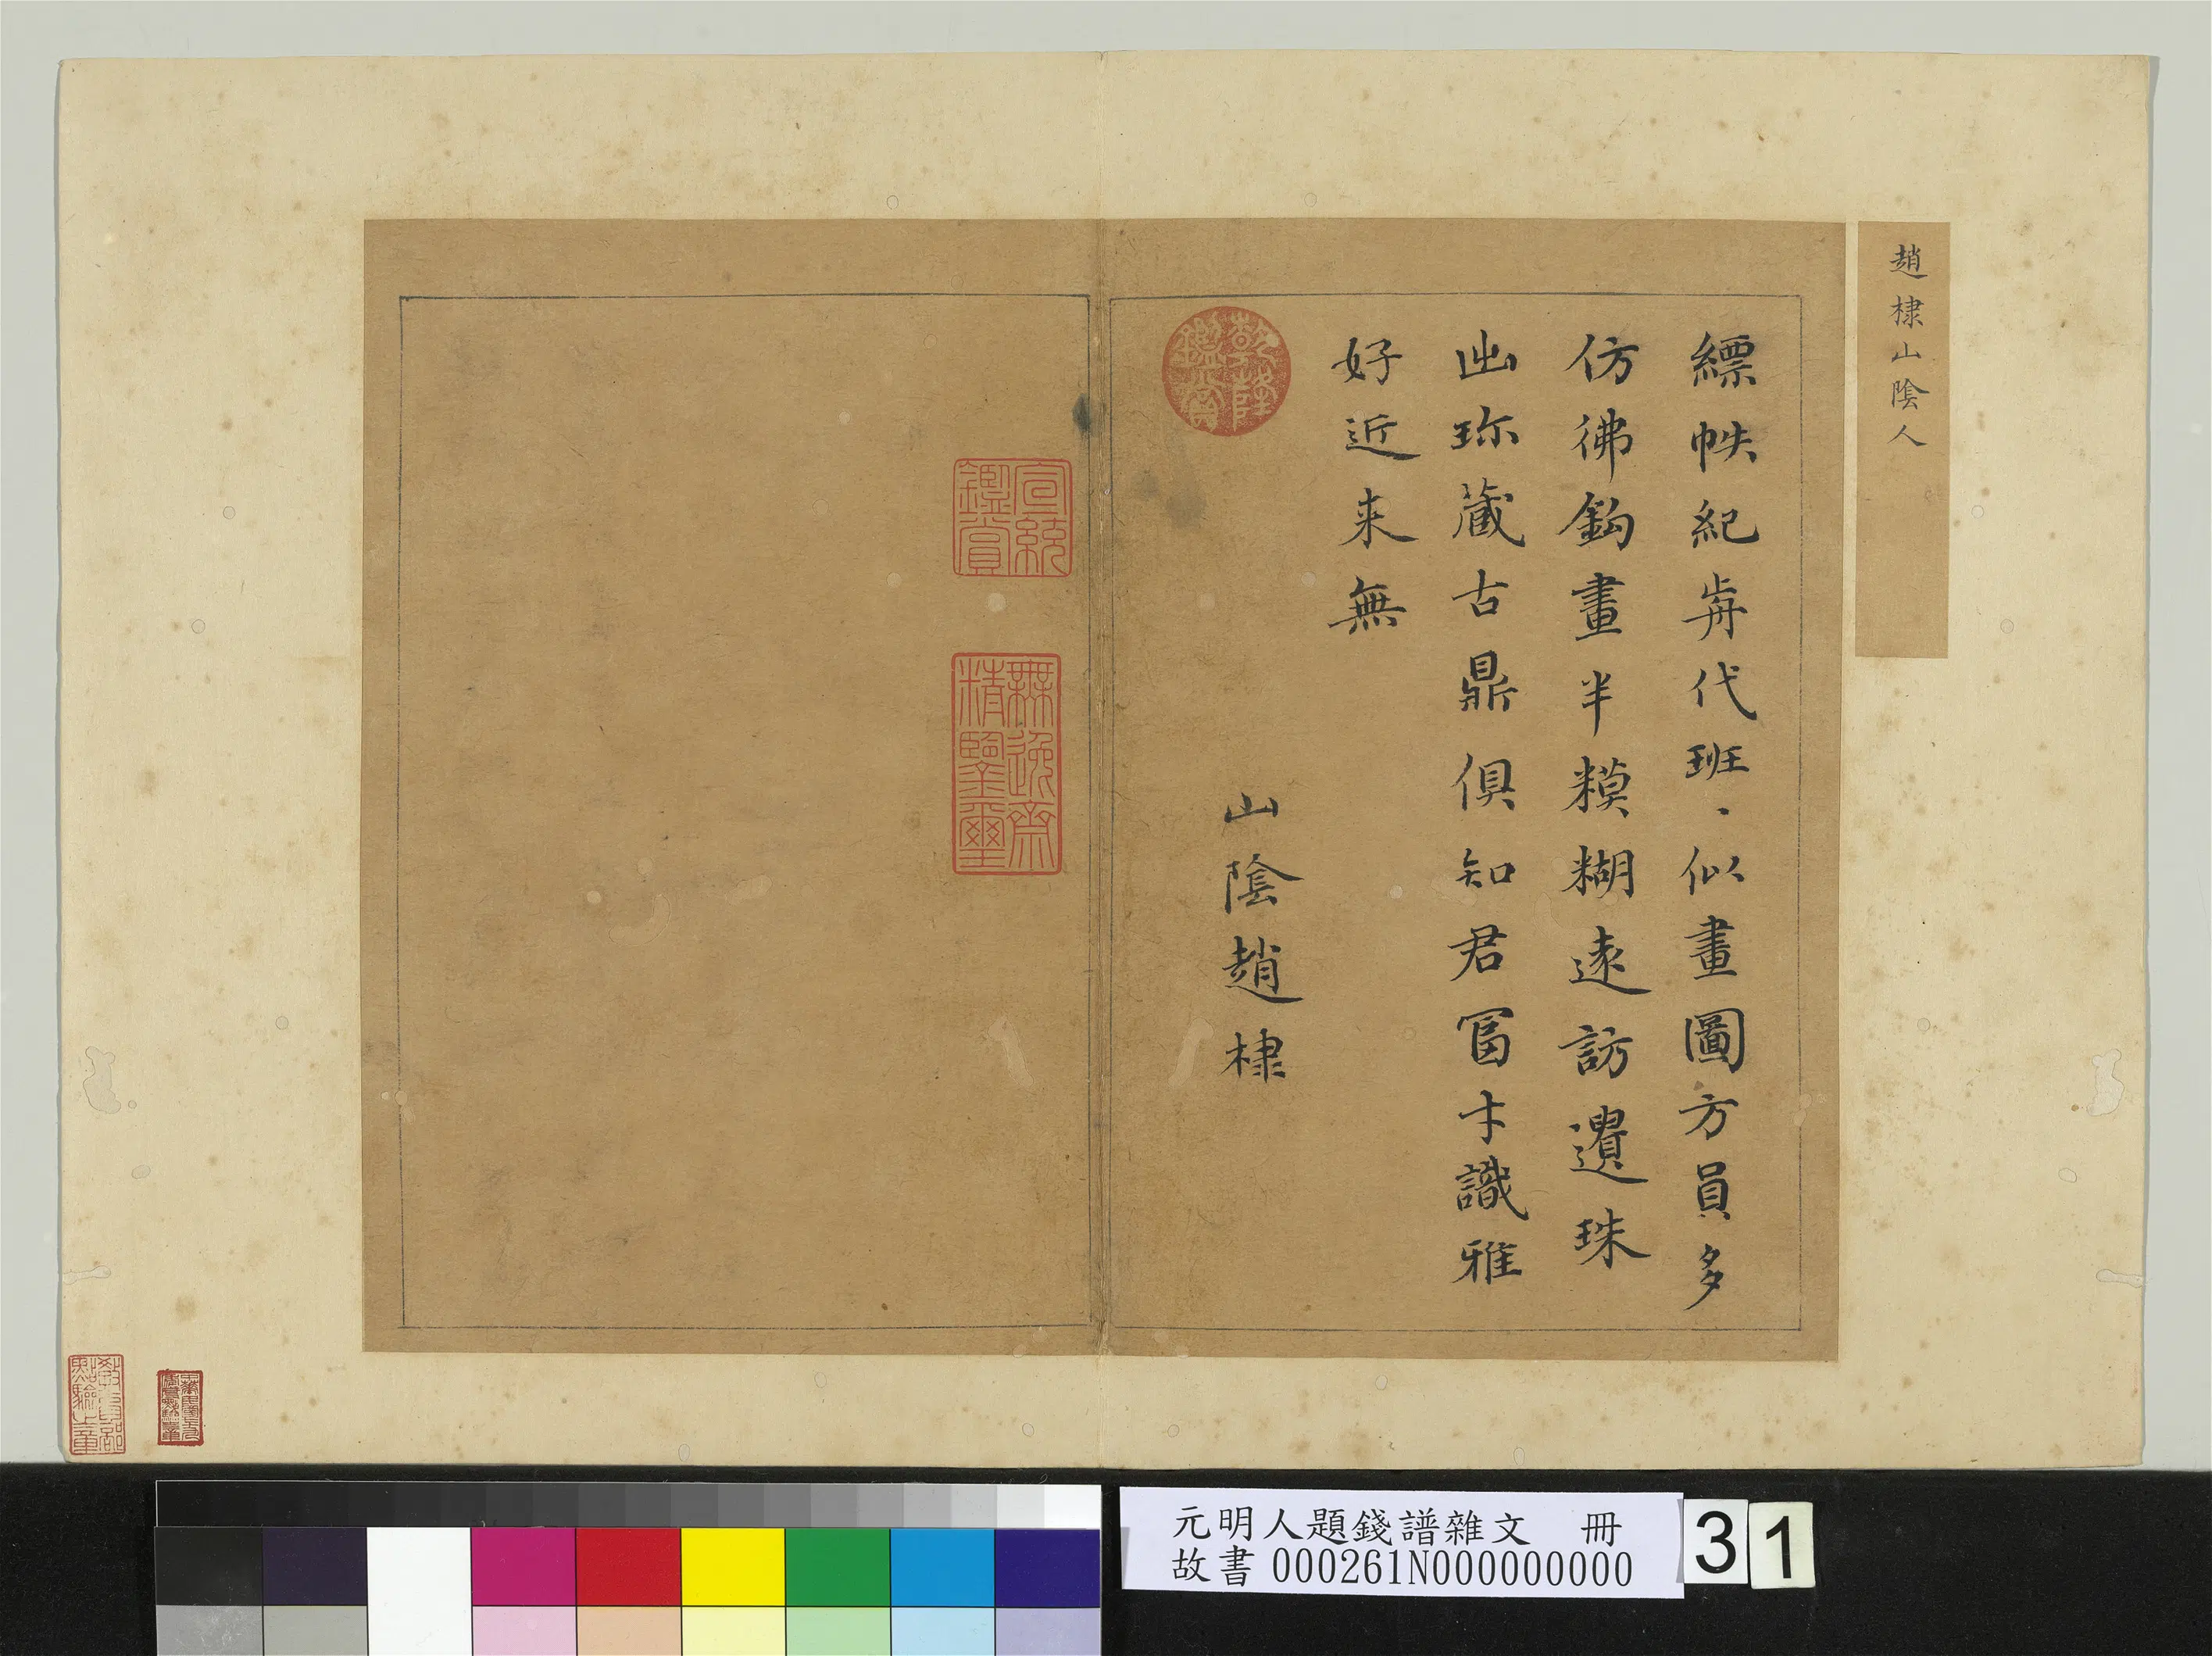 趙棣山陰人
縹帙紀歬代班、似畫圖方員多
仿彿鈎畫半糢糊遠訪遺珠
出珎藏古鼎俱知君冨才識雅
好近来無
山陰趙棣
乾隆鑑賞
宣統鑑賞
無逸齋精鑒璽
元明人題錢譜雜文 冊
故書 000261N000000000
31